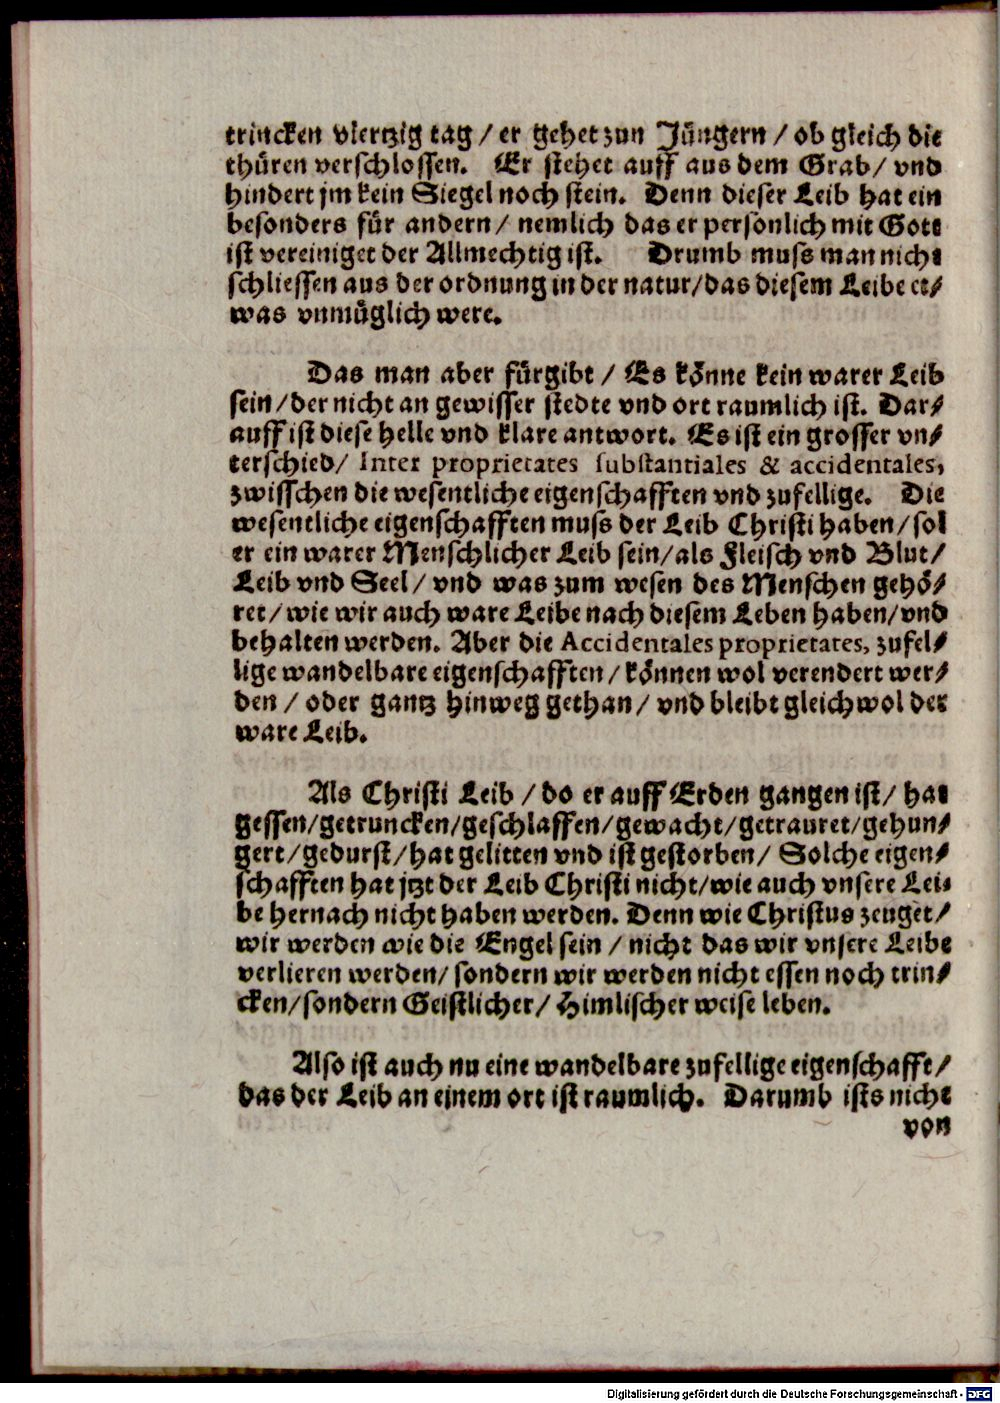 trincken viertzig tag / er gehet zun Jüngern / ob gleich die
thüren verschlossen. Er stehet auff aus dem Grab / vnd
hindert jm kein Siegel noch stein. Denn dieser Leib hat ein
besonders für andern / nemlich das er personlich mit Gott
ist vereiniget der Allmechtig ist. Drumb muss man nicht
schliessen aus der ordnung in der natur / das diesem Leibe et/
was vnmüglich were.
Das man aber fürgibt / Es könne kein warer Leib
sein / der nicht an gewisser stedte vnd ort raumlich ist. Dar/
auff ist diese helle vnd klare antwort. Es ist ein grosser vn/
terschied / Inter proprietates substantiales & accidentales,
zwisschen die wesentliche eigenschafften vnd zufellige. Die
wesentliche eigenschafften muss der Leib Christi haben / sol
er ein warer Menschlicher Leib sein / als Fleisch vnd Blut /
Leib vnd Seel / vnd was zum wesen des Menschen gehö/
ret / wie wir auch ware Leibe nach diesem Leben haben / vnd
behalten werden. Aber die Accidentales proprietates, zufel/
lige wandelbare eigenschafften / können wol verendert wer/
den / oder gantz hinweg gethan / vnd bleibt gleichwol der
ware Leib.
Als Christi Leib / do er auff Erden gangen ist / hat
gessen / getruncken / geschlaffen / gewacht / getrauret / gehun/
gert / gedurst / hat gelitten vnd ist gestorben / Solche eigen/
schafften hat jtzt der Leib Christi nicht / wie auch vnsere Lei/
be hernach nicht haben werden. Denn wie Christus zeuget /
wir werden wie die Engel sein / nicht das wir vnsere Leibe
verlieren werden / sondern wir werden nicht essen noch trin/
cken / sondern Geistlicher / Himlischer weise leben.
Also ist auch nu eine wandelbare zufellige eigenschafft /
das der Leib an einem ort ist raumlich. Darumb ists nicht
von
Digitalisierung gefördert durch die Deutsche Forschungsgemeinschaft - DFG